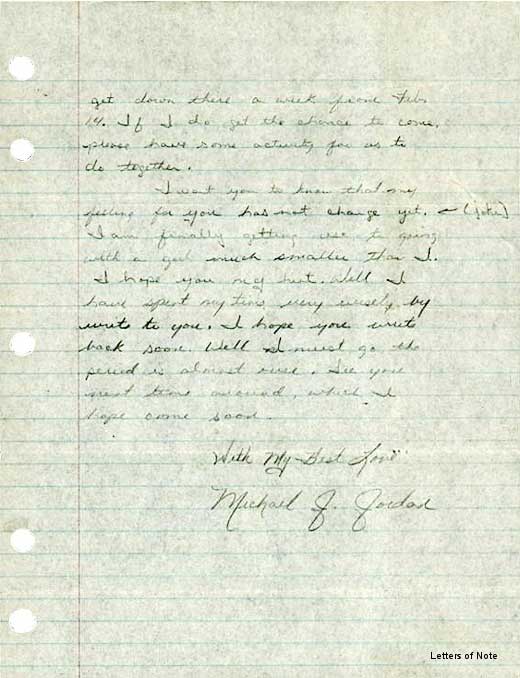 get down there a week from Feb
14. If I do get the chance to come,
please have some activity for us to
do together.
I want you to know that my
feeling for you has not change yet. — (joke)
I am finally getting use to going
with a girl much smaller than I.
I hope you
Well I
have spent my time very wisely by
write to you. I hope you write
back soon. Well I must go the
period is almost over. See you
next time around, which I
hope come soon.
With My Best Love
Michael J. Jordan
Letters of Note